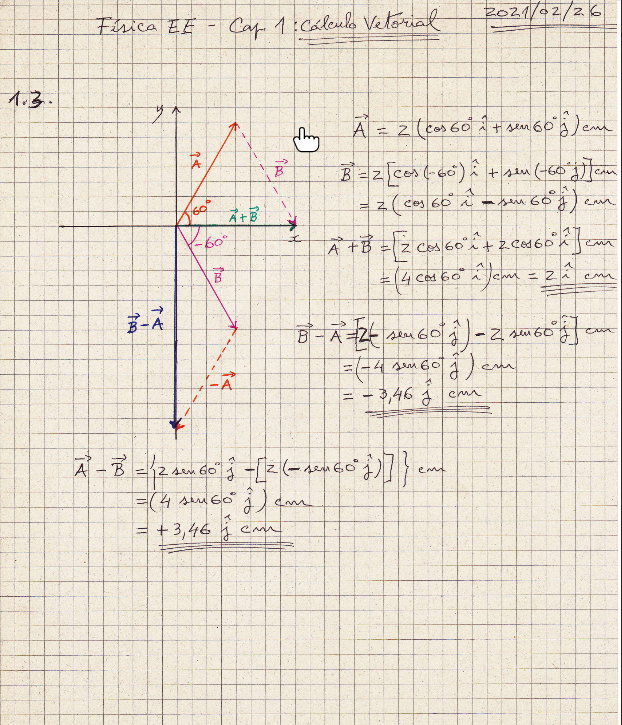 2021/02/26
Física EE - Cap 1: Cálculo Vetorial
1.3.
y
A⃗
B⃗
60°
A⃗+B⃗
x
-60°
B⃗
B⃗-A⃗
-A⃗
A⃗ = 2 (cos60° î + sen60° ĵ) cm
B⃗ = 2 [cos(-60°) î + sen(-60° ĵ)] cm
= 2 (cos60° î - sen60° ĵ) cm
A⃗ + B⃗ = [2 cos60° î + 2 cos60° î] cm
= (4 cos60° î) cm = 2 î cm
B⃗ - A⃗ = [2(- sen60° ĵ) - 2 sen60° ĵ] cm
= (-4 sen60° ĵ) cm
= - 3,46 ĵ cm
A⃗ - B⃗ = {2 sen60° ĵ - [2 (- sen60° ĵ)]} cm
= (4 sen60° ĵ) cm
= + 3,46 ĵ cm